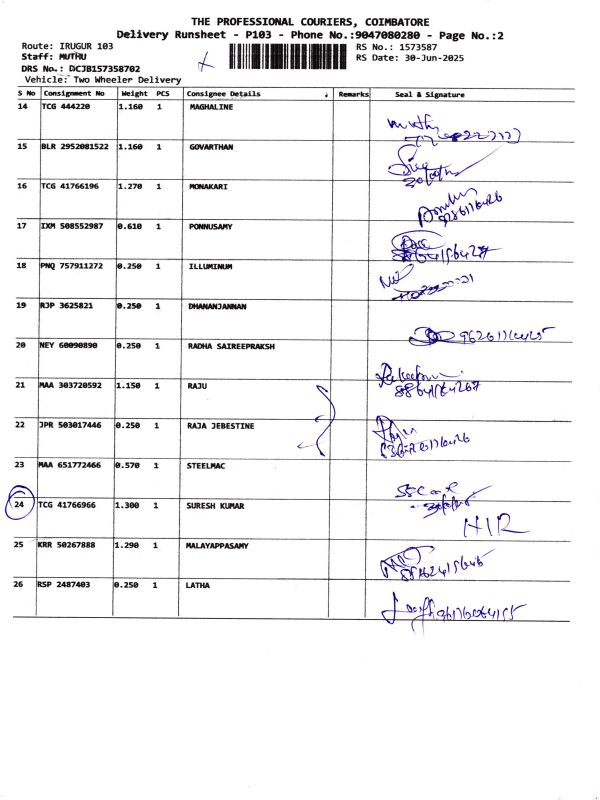 THE PROFESSIONAL COURIERS, COIMBATORE
Delivery Runsheet - P103 - Phone No.:9047080280 - Page No.:2
Route: IRUGUR 103
Staff: MUTHU
DRS No.: DCJB157358702
Vehicle: Two Wheeler Delivery
RS No.: 1573587
RS Date: 30-Jun-2025
S No Consignment No Weight PCS Consignee Details Remarks Seal & Signature
14 TCG 444220 1.160 1 MAGHALINE
15 BLR 2952081522 1.160 1 GOVARTHAN
16 TCG 41766196 1.270 1 MONAKARI
17 IXM 508552987 0.610 1 PONNUSAMY
18 PNQ 757911272 0.250 1 ILLUMINUM
19 RJP 3625821 0.250 1 DHANANJANNAN
20 NEY 60090890 0.250 1 RADHA SAIREEPRAKSH
21 MAA 303720592 1.150 1 RAJU
22 JPR 503017446 0.250 1 RAJA JEBESTINE
23 MAA 651772466 0.570 1 STEELMAC
24 TCG 41766966 1.300 1 SURESH KUMAR
25 KRR 50267888 1.290 1 MALAYAPPASAMY
26 RSP 2487403 0.250 1 LATHA